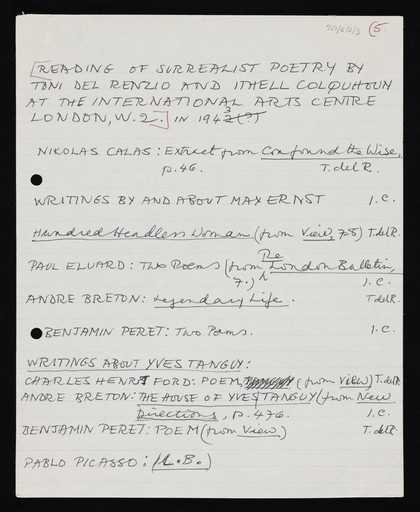 (5.
[READING OF SURREALIST POETRY BY
TONI DEL RENZIO AND ITHELL COLQUHOUN
AT THE INTERNATIONAL ARTS CENTRE
LONDON, W.2.] IN 1943 (?)
NIKOLAS CALAS: Extract from Confound the Wise,
p.46. T. del R.
WRITINGS BY AND ABOUT MAX ERNST I.C.
Hundred Headless Woman (from View, 7-8) T. del R.
PAUL ELUARD: Two Poems (from The London Bulletin,
7.) I.C.
ANDRE BRETON: Legendary Life. T. del R.
BENJAMIN PERET: Two Poems. I.C.
WRITINGS ABOUT YVES TANGUY:
CHARLES HENRI FORD: POEM, (from View) T. del R.
ANDRE BRETON: THE HOUSE OF YVES TANGUY (from New
Directions, p.476. I.C.
BENJAMIN PERET: POEM (from View) T. del R.
PABLO PICASSO: (L.B.)